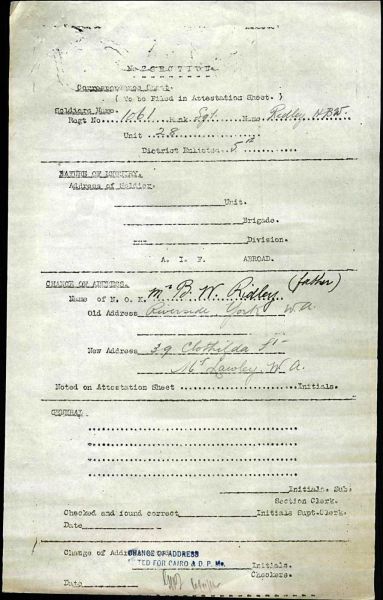 N. SECTION.
Correspondence Sheet.
( To be Filed in Attestation Sheet.)
Soldiers Name.
Regt No. 1061 Rank Sgt. Name Ridley, H.B.W.
Unit 28
District Enlisted. 5th
NATURE OF INQUIRY.
Address of Soldier.
Unit.
Brigade.
Division.
A. I. F. ABROAD.
CHANGE OF ADDRESS.
Name of N. O. K. Mr B. W. Ridley (father)
Old Address Riverside York W A
New Address 39 Clothilda St
Mt Lawley W A.
Noted on Attestation Sheet Initials.
GENERAL
Initials. Sub.
Section Clerk.
Checked and found correct Initials Supt.Clerk.
Date
Change of Address
CHANGE OF ADDRESS
NOTED FOR CAIRO & D.P. Me.
Initials.
Checkers.
Date